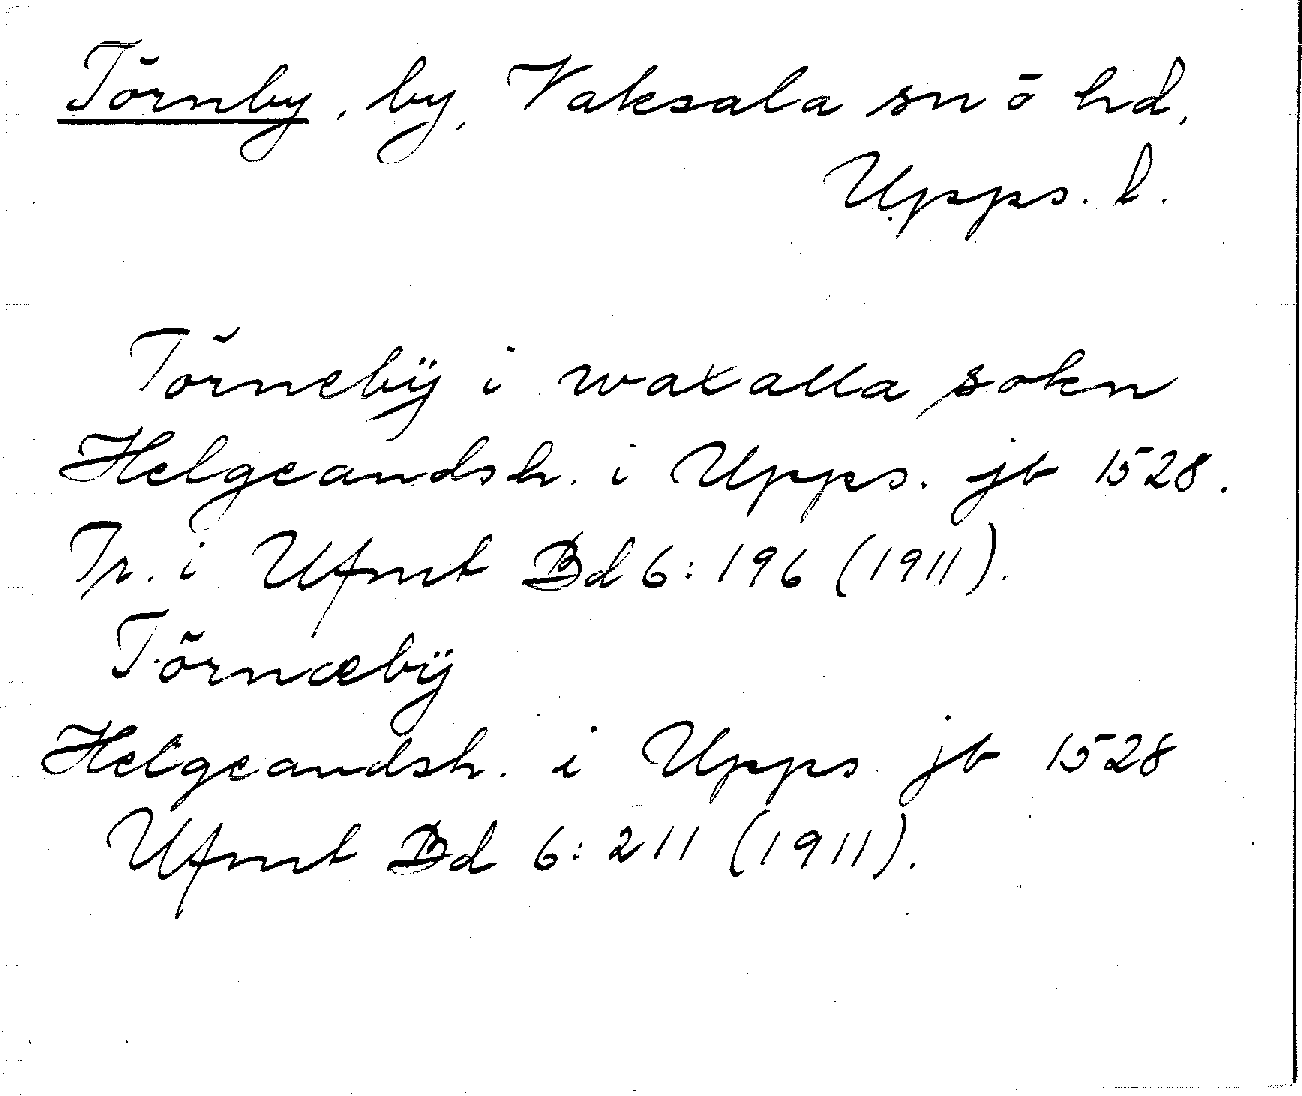 Törnby, by, Vaksala sn ö hd,
Upps. l.
Törnebÿ i waxalla sokn
Helgeandsh. i Upps. jb 1528.
Tr. i Ufmt Bd 6:196 (1911).
Törnæbÿ
Helgeandsh. i Upps jb 1528
Ufmt Bd 6:211 (1911).